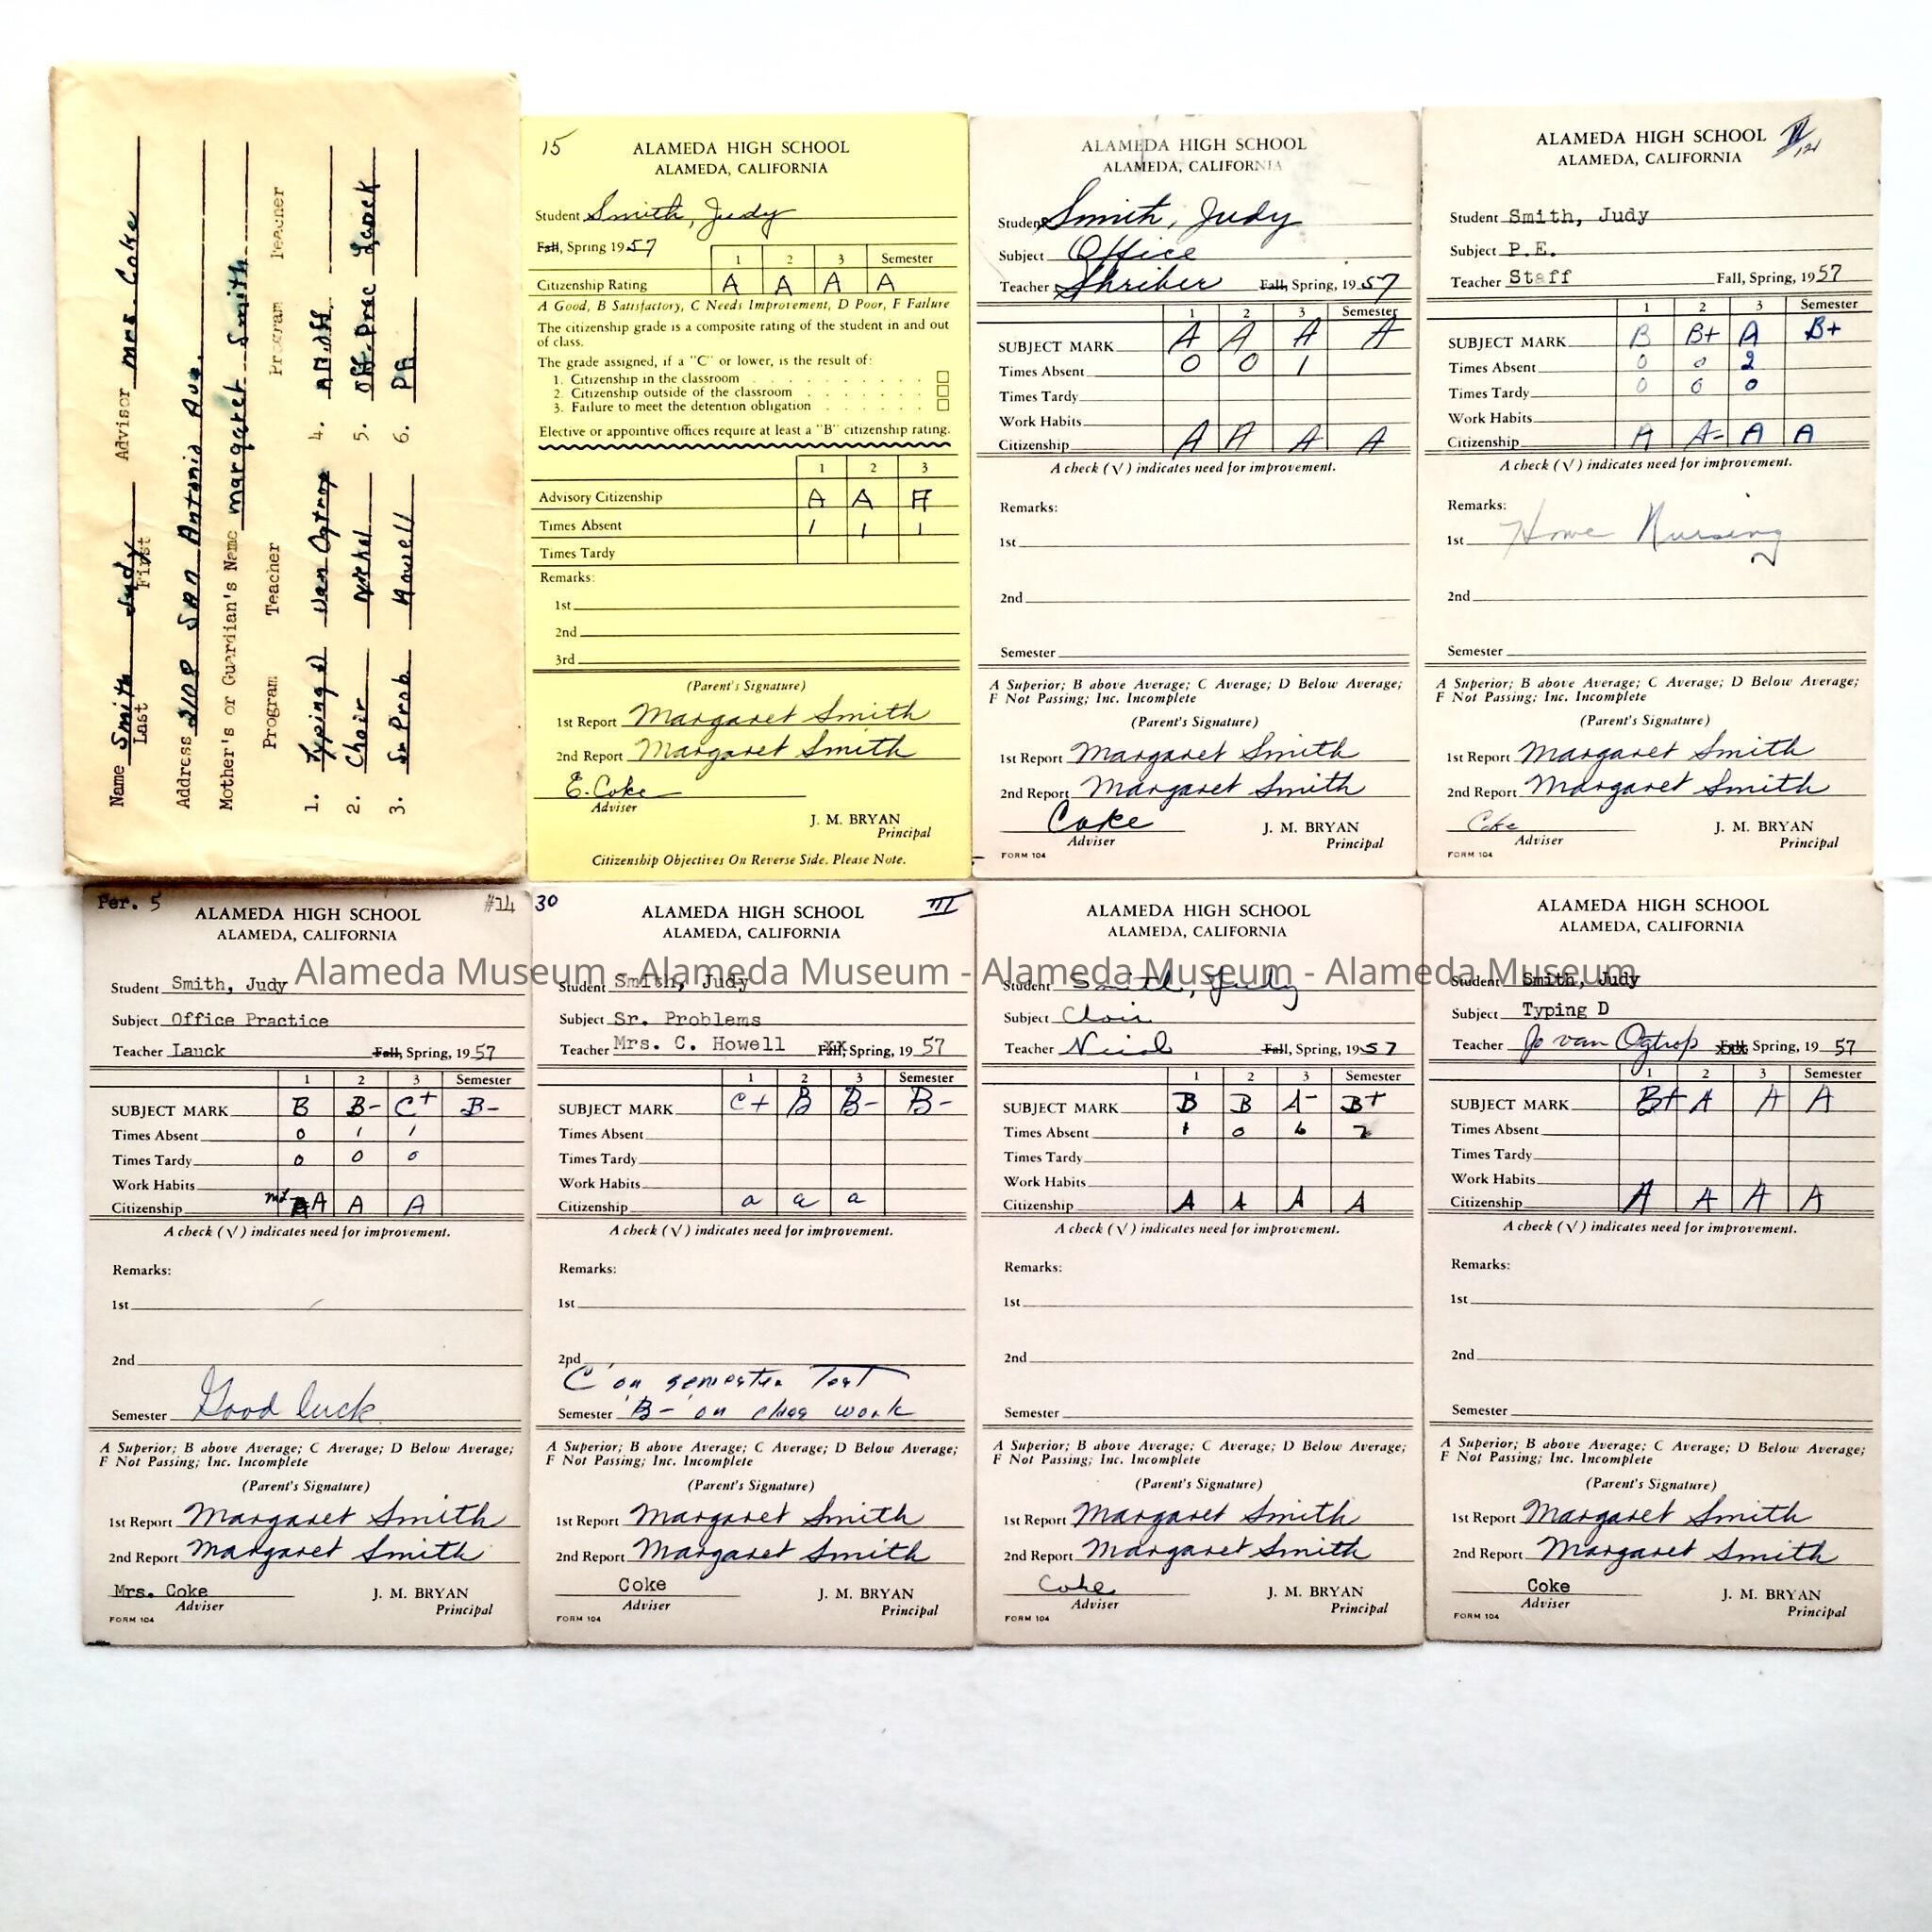 Name Smith Judy Advisor Mrs. Coke
Last First
Address San Antonio Ave.
Mother's or Guardian's Name Margaret Smith
Program Teacher Program Teacher
1. Typing d Van Ogtrop 4.
2. Choir 5. Off. Prac Lauck
3. Sr Prob Howell 6. PE
15
ALAMEDA HIGH SCHOOL
ALAMEDA, CALIFORNIA
Student Smith, Judy
Fall, Spring 1957
1 2 3 Semester
Citizenship Rating A A A A
A Good, B Satisfactory, C Needs Improvement, D Poor, F Failure
The citizenship grade is a composite rating of the student in and out
of class.
The grade assigned, if a "C" or lower, is the result of:
1. Citizenship in the classroom
2. Citizenship outside of the classroom
3. Failure to meet the detention obligation
Elective or appointive offices require at least a "B" citizenship rating.
1 2 3
Advisory Citizenship A A A
Times Absent 1 1 1
Times Tardy
Remarks:
1st
2nd
3rd
(Parent's Signature)
1st Report Margaret Smith
2nd Report Margaret Smith
E. Coke
Adviser
J. M. BRYAN
Principal
Citizenship Objectives On Reverse Side. Please Note.
ALAMEDA HIGH SCHOOL
ALAMEDA, CALIFORNIA
Student Smith, Judy
Subject Office
Teacher Shriber Fall, Spring, 1957
1 2 3 Semester
SUBJECT MARK A A A A
Times Absent 0 0 1
Times Tardy
Work Habits
Citizenship A A A A
A check (√) indicates need for improvement.
Remarks:
1st
2nd
Semester
A Superior; B above Average; C Average; D Below Average;
F Not Passing; Inc. Incomplete
(Parent's Signature)
1st Report Margaret Smith
2nd Report Margaret Smith
Coke
Adviser
J. M. BRYAN
Principal
FORM 104
ALAMEDA HIGH SCHOOL
ALAMEDA, CALIFORNIA
Student Smith, Judy
Subject P.E.
Teacher Staff Fall, Spring, 1957
1 2 3 Semester
SUBJECT MARK B B+ A B+
Times Absent 0 0 2
Times Tardy 0 0 0
Work Habits
Citizenship A A- A A
A check (√) indicates need for improvement.
Remarks:
1st Home Nursing
2nd
Semester
A Superior; B above Average; C Average; D Below Average;
F Not Passing; Inc. Incomplete
(Parent's Signature)
1st Report Margaret Smith
2nd Report Margaret Smith
Coke
Adviser
J. M. BRYAN
Principal
FORM 104
Per. 5 #14
ALAMEDA HIGH SCHOOL
ALAMEDA, CALIFORNIA
Student Smith, Judy
Subject Office Practice
Teacher Lauck Fall, Spring, 1957
1 2 3 Semester
SUBJECT MARK B B- C+ B-
Times Absent 0 1 1
Times Tardy 0 0 0
Work Habits
Citizenship A A A
A check (√) indicates need for improvement.
Remarks:
1st
2nd
Semester Good luck
A Superior; B above Average; C Average; D Below Average;
F Not Passing; Inc. Incomplete
(Parent's Signature)
1st Report Margaret Smith
2nd Report Margaret Smith
Mrs. Coke
Adviser
J. M. BRYAN
Principal
FORM 104
30 III
ALAMEDA HIGH SCHOOL
ALAMEDA, CALIFORNIA
Student Smith, Judy
Subject Sr. Problems
Teacher Mrs. C. Howell Fall, Spring, 1957
1 2 3 Semester
SUBJECT MARK C+ B B- B-
Times Absent
Times Tardy
Work Habits
Citizenship a a a
A check (√) indicates need for improvement.
Remarks:
1st
2nd
C on semester Test
Semester B- on class work
A Superior; B above Average; C Average; D Below Average;
F Not Passing; Inc. Incomplete
(Parent's Signature)
1st Report Margaret Smith
2nd Report Margaret Smith
Coke
Adviser
J. M. BRYAN
Principal
FORM 104
ALAMEDA HIGH SCHOOL
ALAMEDA, CALIFORNIA
Student Smith, Judy
Subject Choir
Teacher Fall, Spring, 1957
1 2 3 Semester
SUBJECT MARK B B A- B+
Times Absent 1 0 6 7
Times Tardy
Work Habits
Citizenship A A A A
A check (√) indicates need for improvement.
Remarks:
1st
2nd
Semester
A Superior; B above Average; C Average; D Below Average;
F Not Passing; Inc. Incomplete
(Parent's Signature)
1st Report Margaret Smith
2nd Report Margaret Smith
Coke
Adviser
J. M. BRYAN
Principal
FORM 104
ALAMEDA HIGH SCHOOL
ALAMEDA, CALIFORNIA
Student Smith, Judy
Subject Typing D
Teacher Jo van Ogtrop Spring, 1957
1 2 3 Semester
SUBJECT MARK B+ A A A
Times Absent
Times Tardy
Work Habits
Citizenship A A A A
A check (√) indicates need for improvement.
Remarks:
1st
2nd
Semester
A Superior; B above Average; C Average; D Below Average;
F Not Passing; Inc. Incomplete
(Parent's Signature)
1st Report Margaret Smith
2nd Report Margaret Smith
Coke
Adviser
J. M. BRYAN
Principal
FORM 104
Alameda Museum - Alameda Museum - Alameda Museum - Alameda Museum